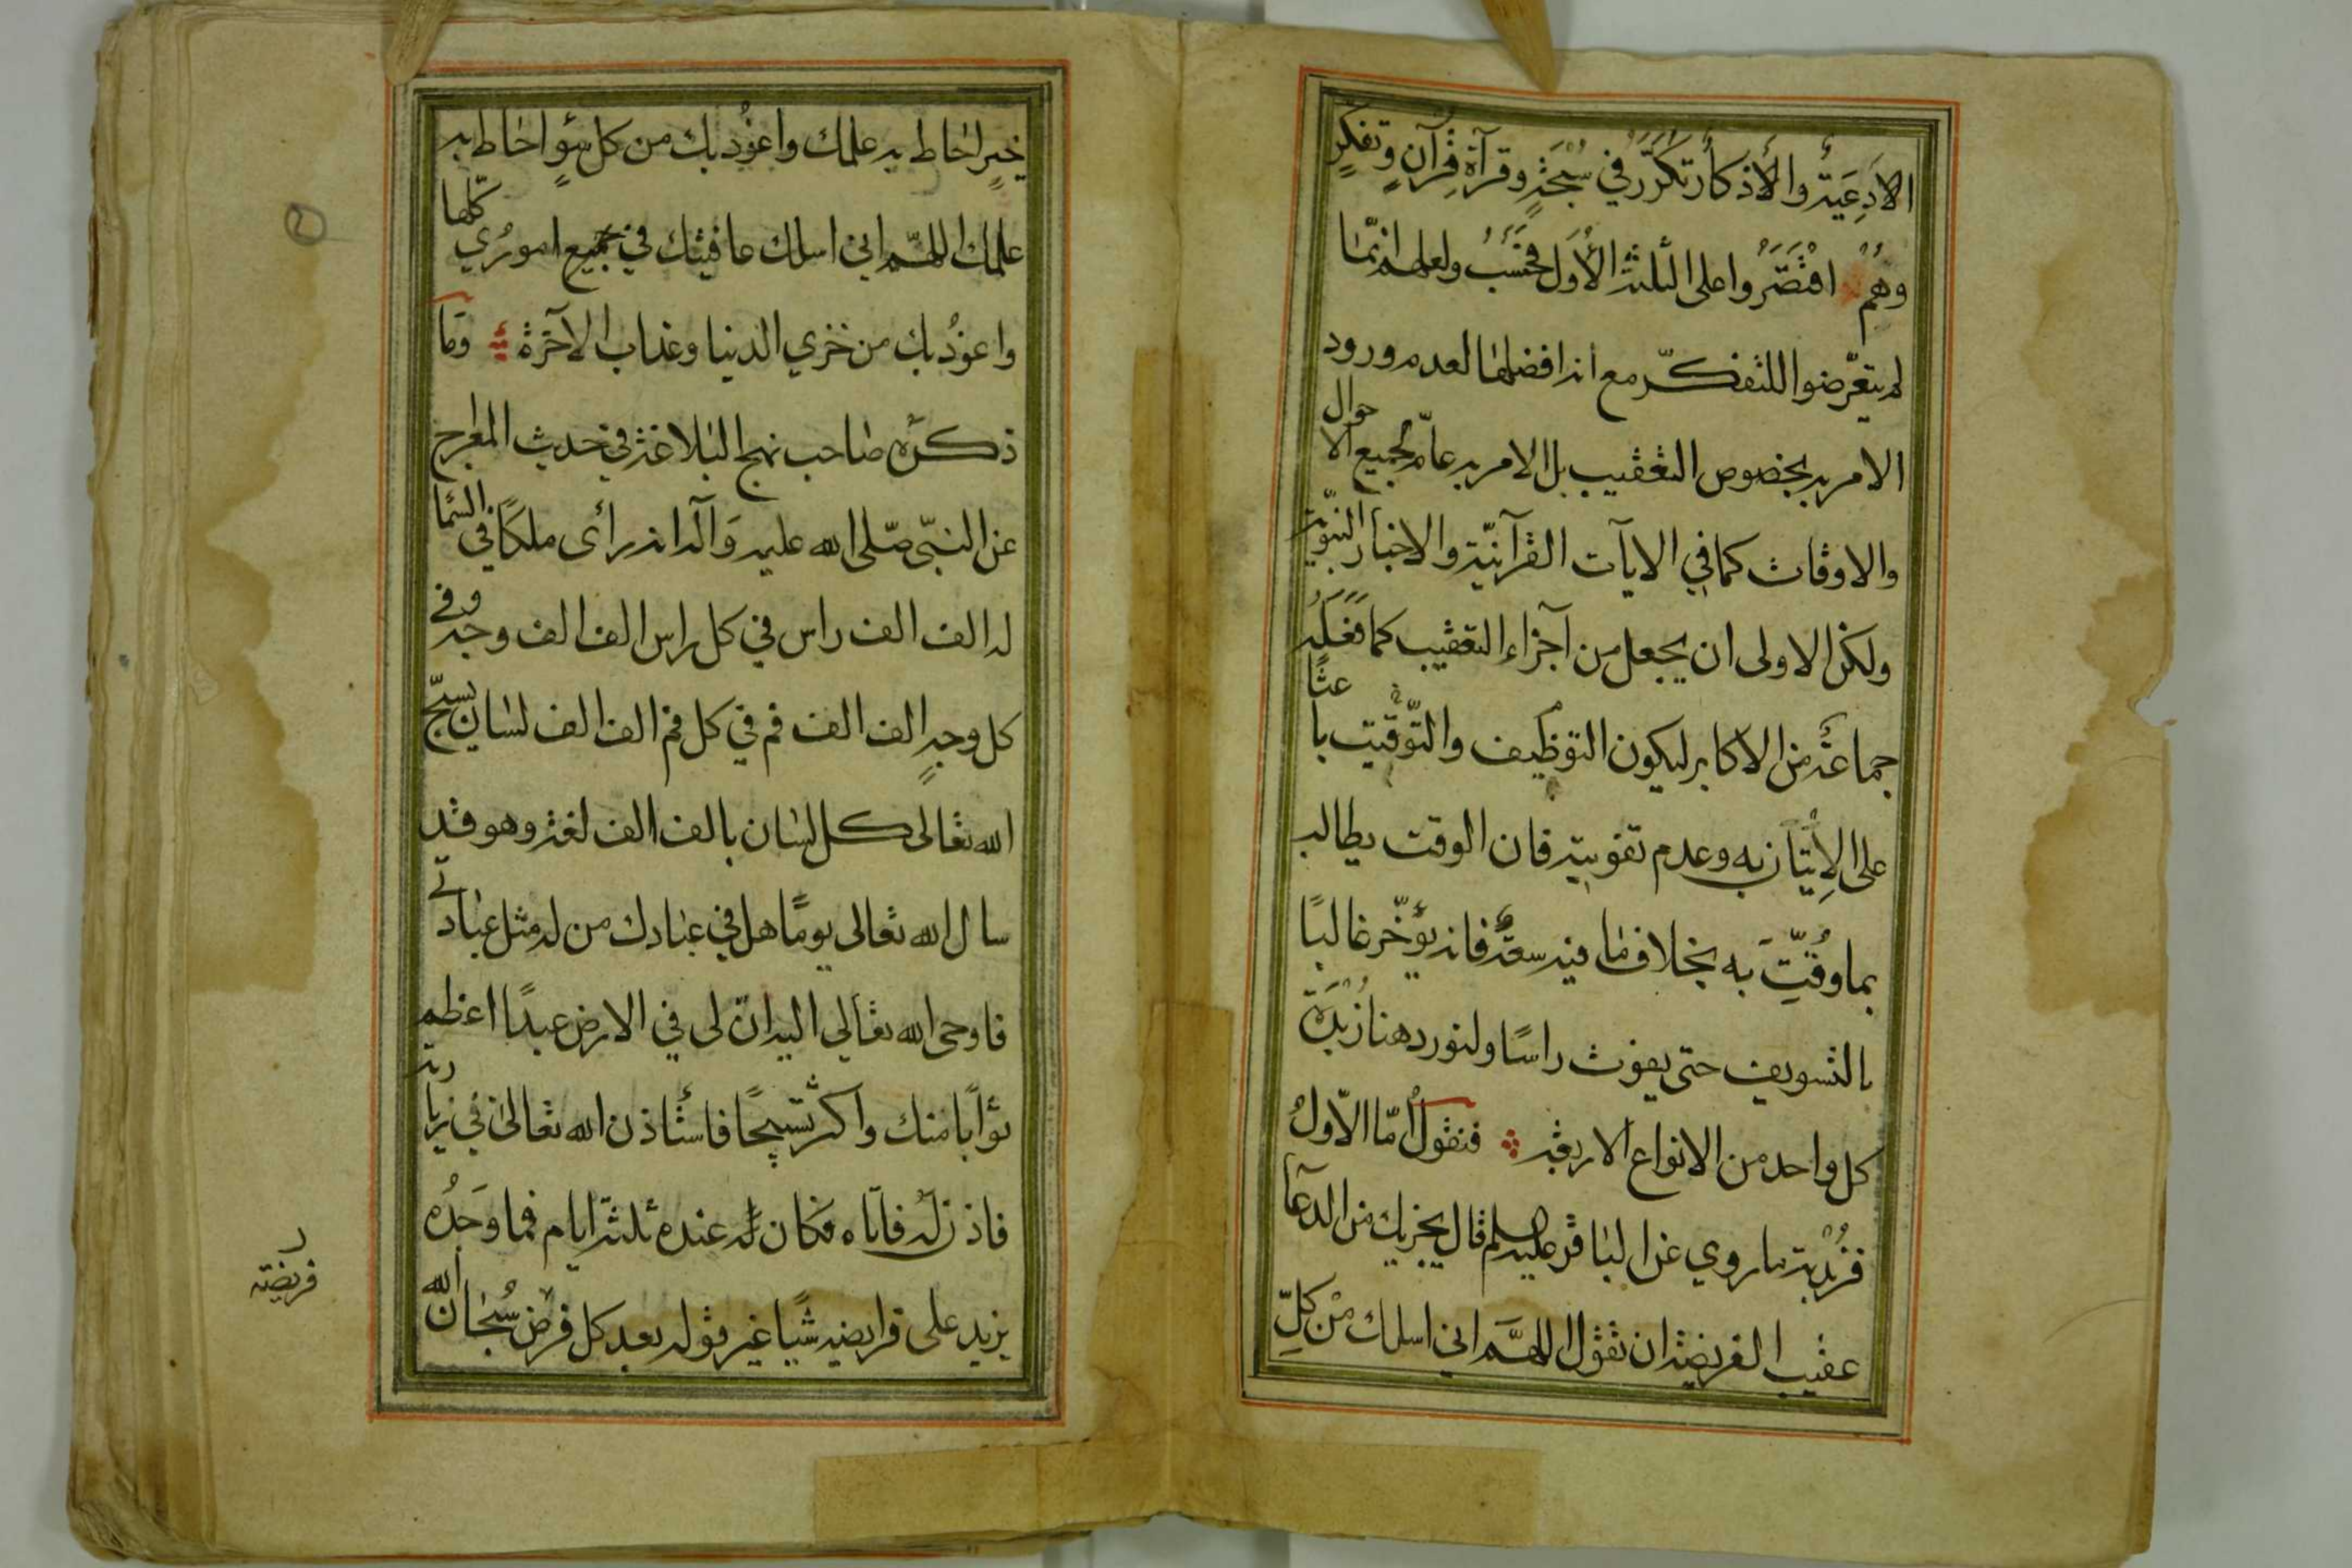 الادعية والأذكار تكرّر في سبحة وقرآة قرآن وتفكر
وهم اقتصروا على الثلثة الأول فحسب ولعلهم انّما
لم يتعرّضوا للتفكّر مع انه افضلها لعدم ورود
الامر به بخصوص التعقيب بل الامر به عامّ لجميع الاحوال
والاوقات كما في الايآت القرآنيّة والاخبار النبويّة
ولكن الاولى ان يجعل من آجزاء التعقيب كما فعله
جماعة من الاكابر ليكون التوظيف والتّوقيت باعثًا
على الإتيان به وعدم تفويته فان الوقت يطالب
بما وقّت به بخلاف ما فيه سعة فانه يؤخّر غالبًا
بالتسويف حتى يفوت راسًا ولنورد هنا زبدة
كل واحد من الانواع الاربعة فنقول أمّا الأول
فزبدته ما روي عن الباقر عليه السلم قال يجزيك من الدعآ
عقيب الفريضة ان تقول اللهمّ اني اسلك من كلّ
خيرٍ احاط به علمك واعوذ بك من كل سوءٍ احاط به
علمك اللهمّ اني اسلك عافيتك في جميع اموري كلّها
واعوذ بك من خزي الدنيا وعذاب الآخرة وما
ذكره صاحب نهج البلاغة في حديث المعراج
عن النبيّ صلّى الله عليه وآله انه رأى ملكًا في السما
له الف الف راس في كل راس الف الف وجه وفي
كل وجهٍ الف الف فم في كل فم الف الف لسان يسبّح
الله تعالى كل لسان بالف الف لغة وهو قد
سال الله تعالى يومًا هل في عبادك من له مثل عبادتي
فاوحى الله تعالي اليه انّ لى في الارض عبدًا اعظم
ثوابًا منك واكثر تسبيحًا فاستأذن الله تعالى في زيارته
فاذن له فاتاه فكان له عنده ثلثة ايام فما وجده
يزيد على فرايضه شيًا غير قوله بعد كل فرض سبحان الله
فريضة